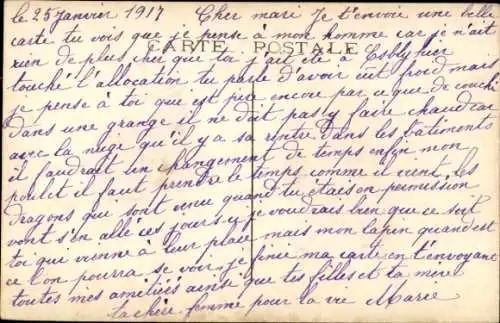 le 25 janvier 1917 Cher mari Je t'envoie une belle
carte tu vois que je pense à mon homme car je n'ait
CARTE POSTALE
rien de plus cher que toi j'ait été à Esbly hier
touché l'allocation tu parle d'avoir eut froid mais
je pense à toi que est pire encore par ce que de couché
dans une grange il ne doit pas y faire chaud car
avec la neige qu'il y a sa rentre dans les batiments
il faudrait un changement de temps enfin mon
poulet il faut prendre le temps comme il vient les
dragons qui sont venu quand tu étais en permission
vont s'en allé ces jours y je voudrais bien que ce soit
toi que vienne à leur place mais mon lapin quand est
ce l'on pourra se voir je finie ma carte en t'envoyant
toutes mes amitiées ainsi que tes filles et ta mère
ta chère femme pour la vie Marie